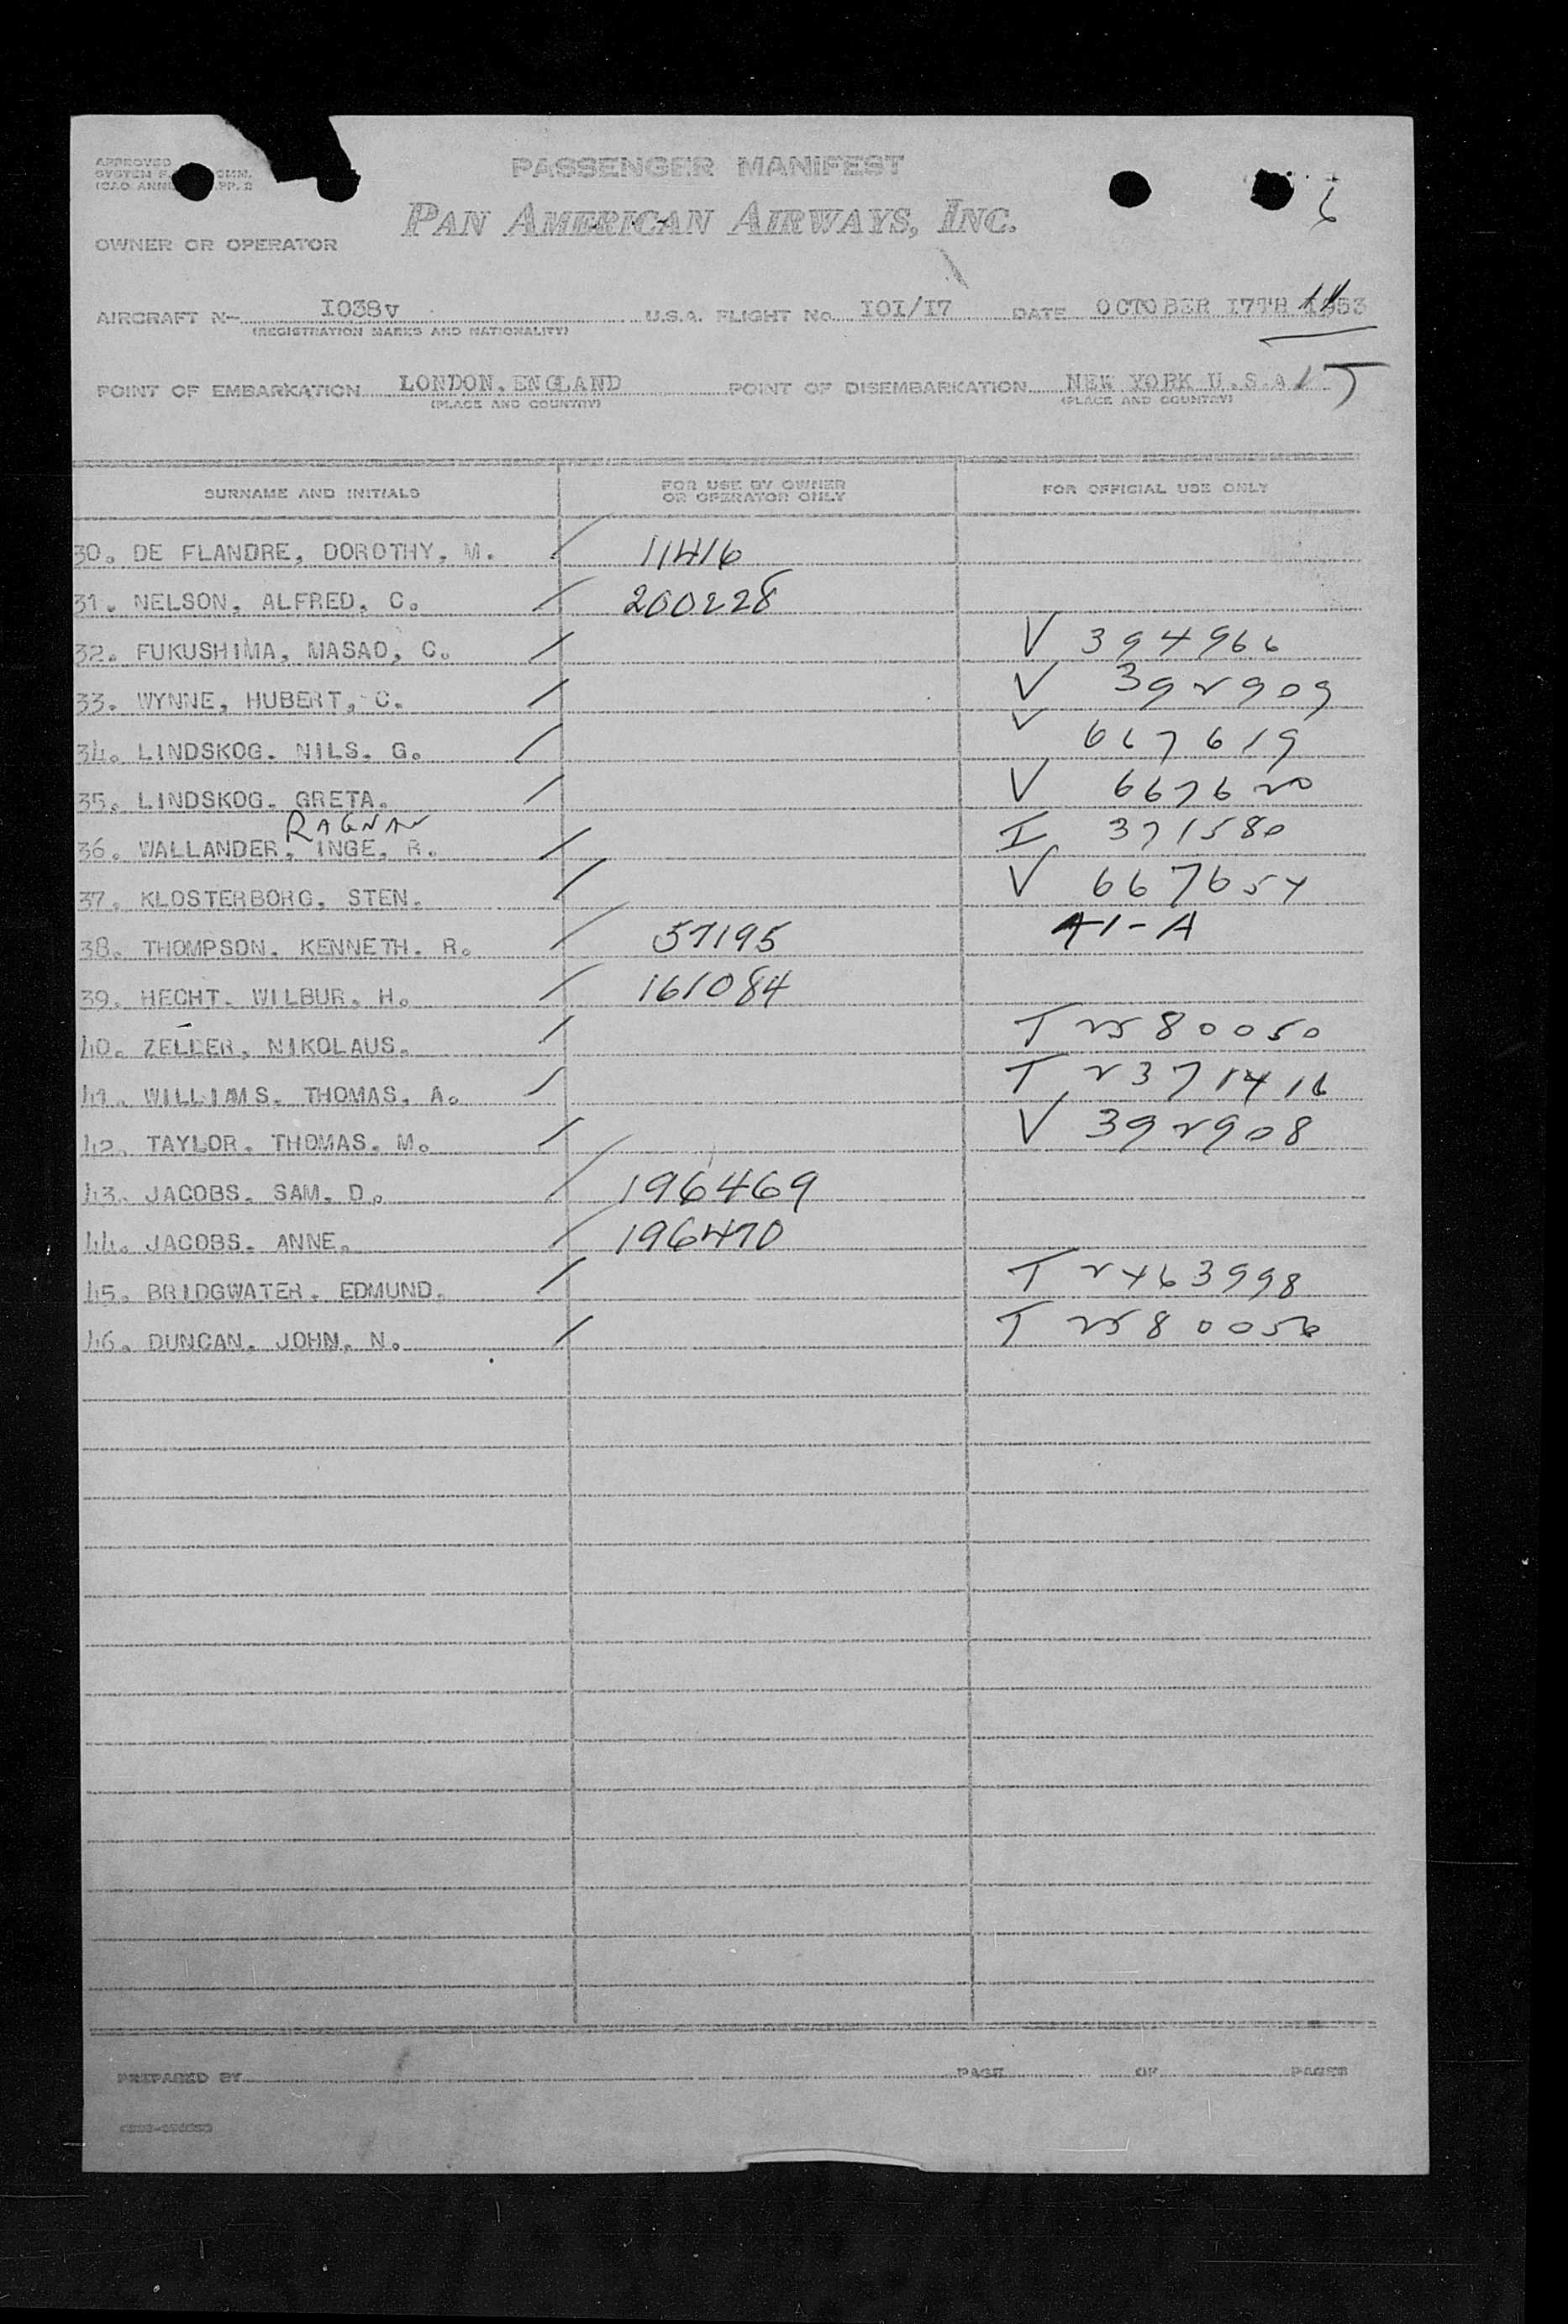 APPROVED
SYSTEM COMM.
ICAO ANNE PP. 2
PASSENGER MANIFEST
6
PAN AMERICAN AIRWAYS, INC.
OWNER OR OPERATOR
AIRCRAFT N- 1038V U.S.A. FLIGHT No. 101/17 DATE OCTOBER 17TH 1953
(REGISTRATION MARKS AND NATIONALITY)
POINT OF EMBARKATION LONDON. ENGLAND POINT OF DISEMBARKATION NEW YORK U.S.A
(PLACE AND COUNTRY) (PLACE AND COUNTRY)
SURNAME AND INITIALS FOR USE BY OWNER OR OPERATOR ONLY FOR OFFICIAL USE ONLY
30. DE FLANDRE, DOROTHY, M. / 11416
31. NELSON, ALFRED, C. / 200228
32. FUKUSHIMA, MASAO, C. / V 394966
33. WYNNE, HUBERT, C. / V 392909
34. LINDSKOG. NILS. G. / V 667619
35. LINDSKOG. GRETA. / V 667620
RAGNAR
36. WALLANDER, INGE, R. / I 371580
37. KLOSTERBORG, STEN. / V 667654
38. THOMPSON. KENNETH. R. / 57195 A1-A
39. HECHT. WILBUR, H. / 161084
40. ZELLER, NIKOLAUS. / T 2580050
41. WILLIAMS. THOMAS, A. / T 2371416
42. TAYLOR. THOMAS. M. / V 392908
43. JACOBS. SAM. D. / 196469
44. JACOBS. ANNE. / 196470
45. BRIDGWATER. EDMUND. / T 2463998
46. DUNCAN. JOHN, N. / T 2580056
PREPARED BY PAGE OF PAGES